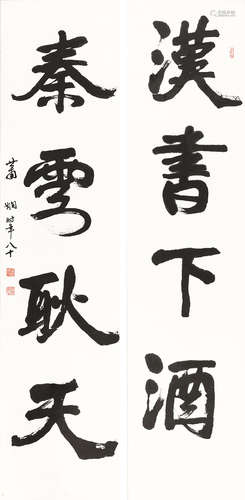 漢書下酒
秦雲耿天
蕭嫻時年八十